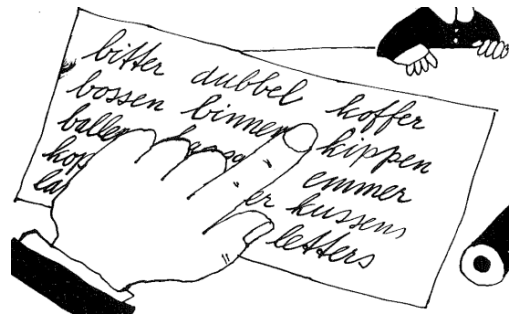 bitter dubbel koffer
bossen binnen kippen
emmer
kussens
letters